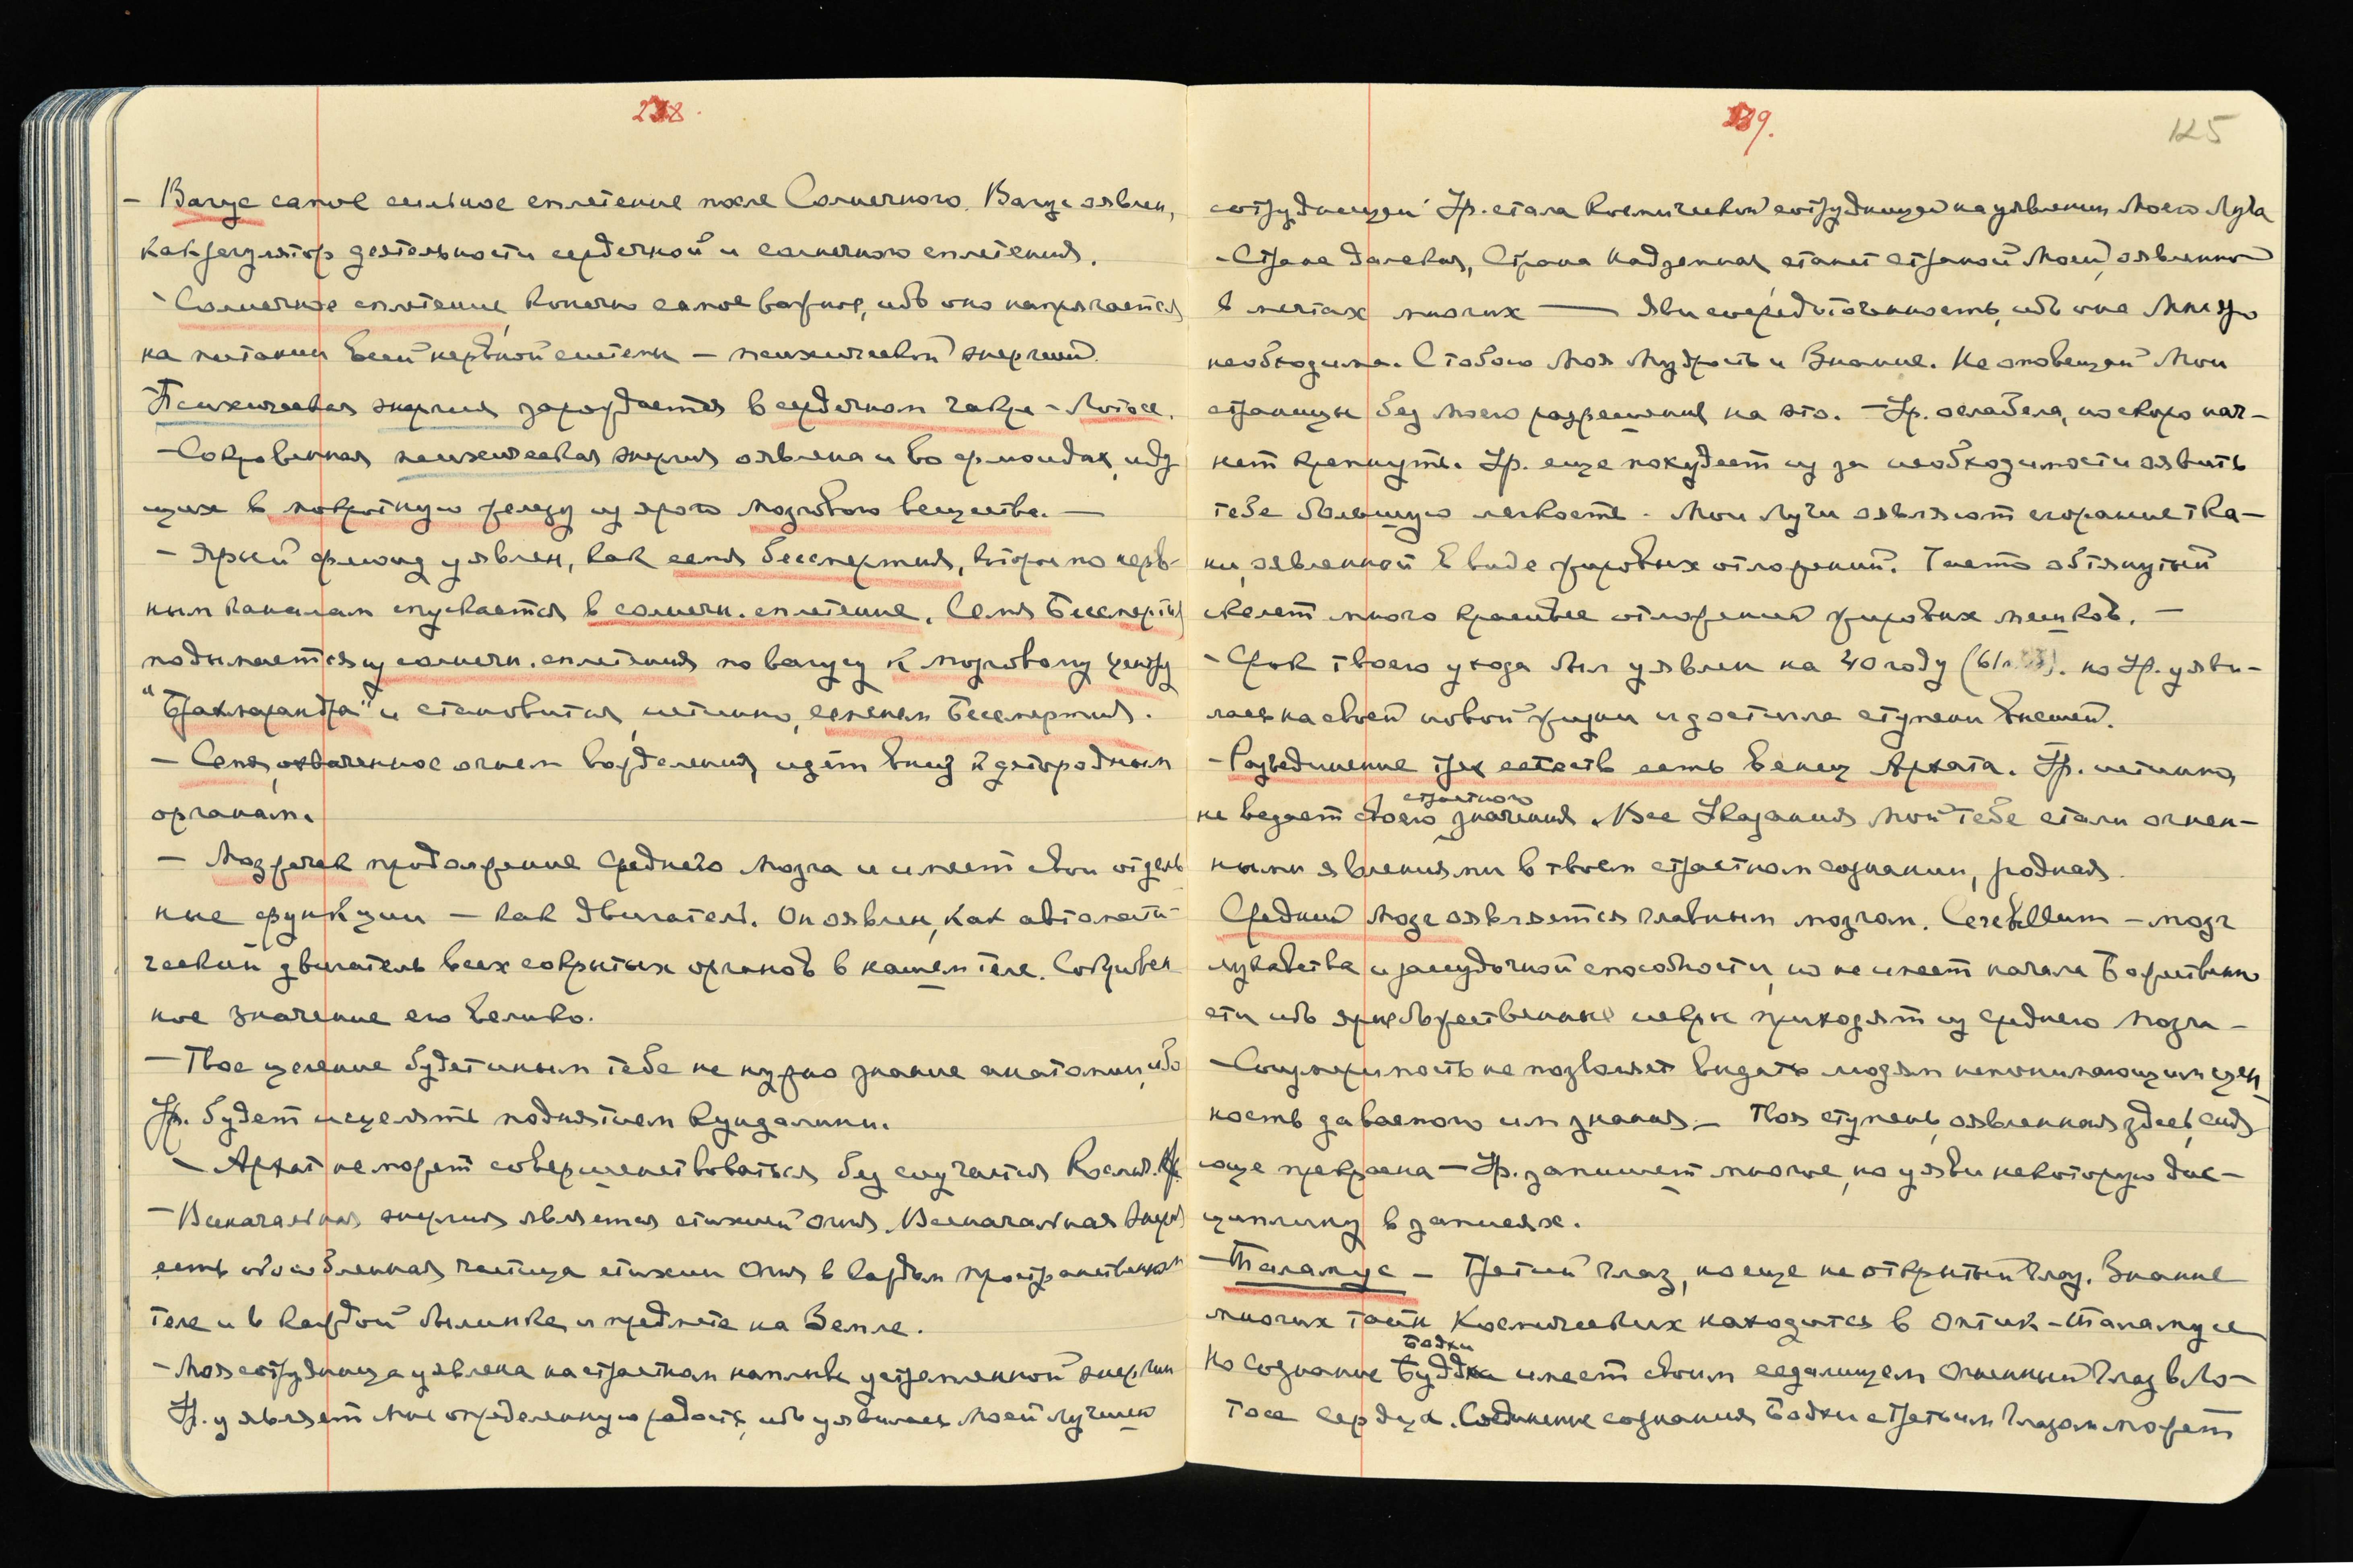 238.
– Вагус самое сильное сплетение после Солнечного. Вагус оявлен,
как регулятор деятельности сердечной и солнечного сплетения.
Солнечное сплетение, конечно самое важное, ибо оно напрягается
на питании всей нервной системы – психической энергией.
Психическая энергия зарождается в сердечном чакре – Лотосе.
– Сокровенная психическая энергия оявлена и во флюидах, иду
щих в покротную железу из ярого мозгового вещества. —
– Ярый флюид уявлен, как семя бессмертия, которое по нерв-
ным каналам спускается в солнечн. сплетение. Семя Бессмертия
подымается из солнечн. сплетения по вагусу к мозговому центру
"Брахмарандра" и становится, истинно, семенем Бессмертия.
– Семя, охваченное огнем вожделения, идёт вниз к детородным
органам.
– Мозжечек продолжение Среднего Мозга и имеет свои отдель
ные функции – как двигатель. Он оявлен, как автомати-
ческий двигатель всех сокрытых органов в нашем теле. Сокровен
ное значение его велико.
– Твое целение будет иным тебе не нужно знание анатомии, ибо
Ур. будет исцелять поднятием Кундалини.
– Архат не может совершенствоваться без соучастия Косм.
– Всеначальная энергия является стихией Огня. Всеначальная Энергия
есть обособленная частица стихии Огня в каждом пространственном
теле и в каждой былинке и предмете на Земле.
– Моя сотрудница уявлена на страстном наплыве устремленной энергии
Ур. уявляет Мне определенную радость, ибо уявилась Моей лучшею
239.
125
сотрудницей Ур. стала Космической сотрудницей на уявлении Моего Луча
– Страна далекая, Страна Надземная станет страной Моей, оявленной
в мечтах многих — Яви сосредоточенность, ибо она Мне
необходима. С тобою Моя Мудрость и Знание. Не оповещай Мои
страницы без Моего разрешения на это. – Ур. ослабела, но скоро нач-
нет крепнуть. Ур. еще похудеет из за необходимости оявить
тебе большую легкость. Мои Лучи оявляют сгорание тка-
ни, оявленной в виде жировых отложений. обтянутый
скелет много красивее отложения жировых мешков. —
– Срок твоего ухода был уявлен на 40 году но Ур. уяви-
лась на своей новой жизни и достигла ступени высшей.
– Разъединение трех естеств есть Венец Архата. Ур. истинно,
страстного
не ведает своего значения. Все Указания Мои тебе стали огнен-
ными явлениями в твоем страстном сознании, родная.
Средний Мозг оявляется главным мозгом. Cerebellum – мозг
лукавства и рассудочной способности, но не имеет начала Божественно
сти ибо ярые божественные искры приходят из среднего Мозга –
– Соизмеримость не позволяет выдать людям непонимающим цен
ность даваемого им знания. – Твоя ступень, оявленная здесь, сия
юще прекрасна – Ур. запишет многое, но уяви некоторую дис-
циплину в записях.
– Таламус – Третий глаз, но еще не открытый Глаз. Знание
многих тайн Космических находится в Оптик-Таламусе
Бодхи
Но Сознание Буддхи имеет своим седалищем Огненный Глаз в Ло-
тосе Сердца. Соединение сознания Бодхи с Третьим Глазом может